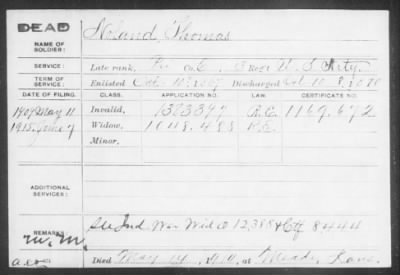 DEAD
NAME OF SOLDIER: Noland, Thomas
SERVICE: Late rank, Co. C, 3 Regt U. S. Arty.
TERM OF SERVICE: Enlisted Oct. Discharged Oct. 10
DATE OF FILING. CLASS. APPLICATION NO. LAW. CERTIFICATE NO.
1909 May 11 Invalid, 1383397 1169.672
1915 June 7 Widow, 1048.488
Minor,
ADDITIONAL SERVICES:
REMARKS: See Ind War Wid O 12388 Ctf 8444
m. m.
Died May 14, 1910, at Meade, Kans.